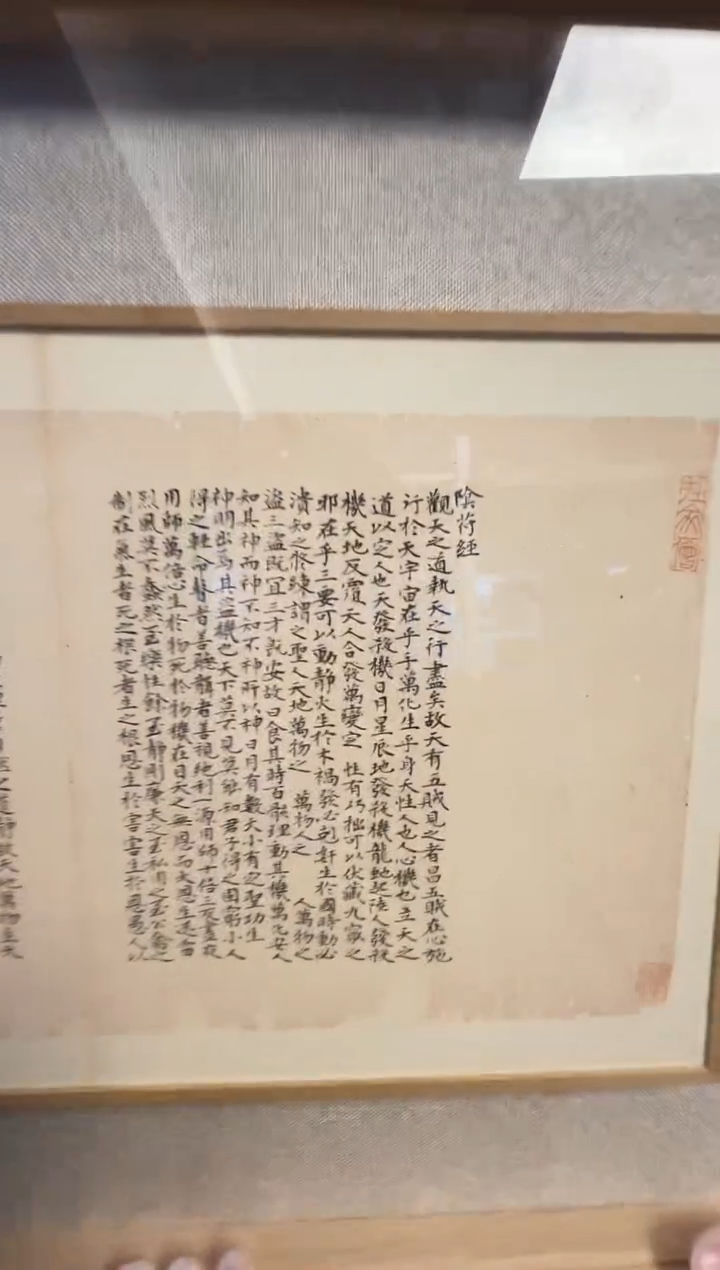 陰符經
觀天之道執天之行盡矣故天有五賊見之者昌五賊在心施
行於天宇宙在乎手萬化生乎身天性人也人心機也立天之
道以定人也天發殺機日月星辰地發殺機龍虵起陸人發殺
機天地反覆天人合發萬變定 性有巧拙可以伏藏九竅之
邪在乎三要可以動靜火生於木禍發必剋姧生於國時動必
潰知之修練謂之聖人天地萬物之 萬物人之 人萬物之
盜三盜既冝三才既安故曰食其時百骸理動其機萬化安人
知其神而神不知不神所以神日月有數大小有定聖功生
神明出焉其盜機也天下莫不見莫能知君子得之固窮小人
得之輕命瞽者善聽聾者善視絶利一源用師十倍三反晝夜
用師萬倍心生於物死於物機在目天之無恩而大恩生迅雷
烈風莫不蠢然至樂性餘至靜則廉天之至私用之至公禽之
制在氣生者死之根死者生之根恩生於害害生於恩愚人以